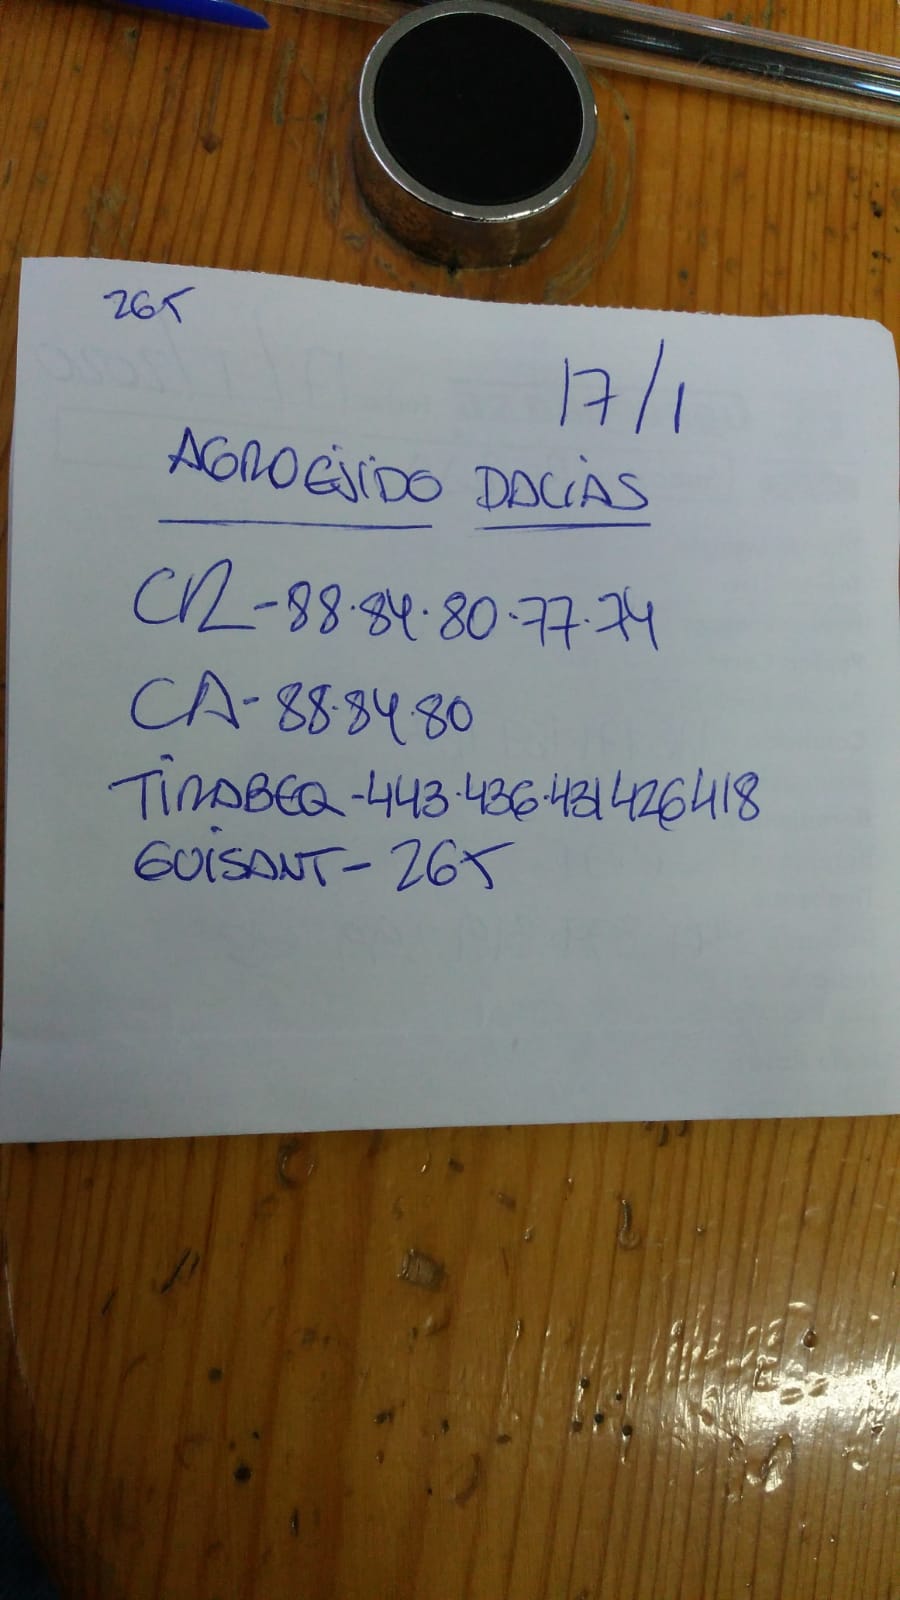 265
17/1
AGROEJIDO DALIAS
CR-88.84.80.77.74
CA-88.84.80
TIRABEQ-443.436.431426418
GUISANT-265